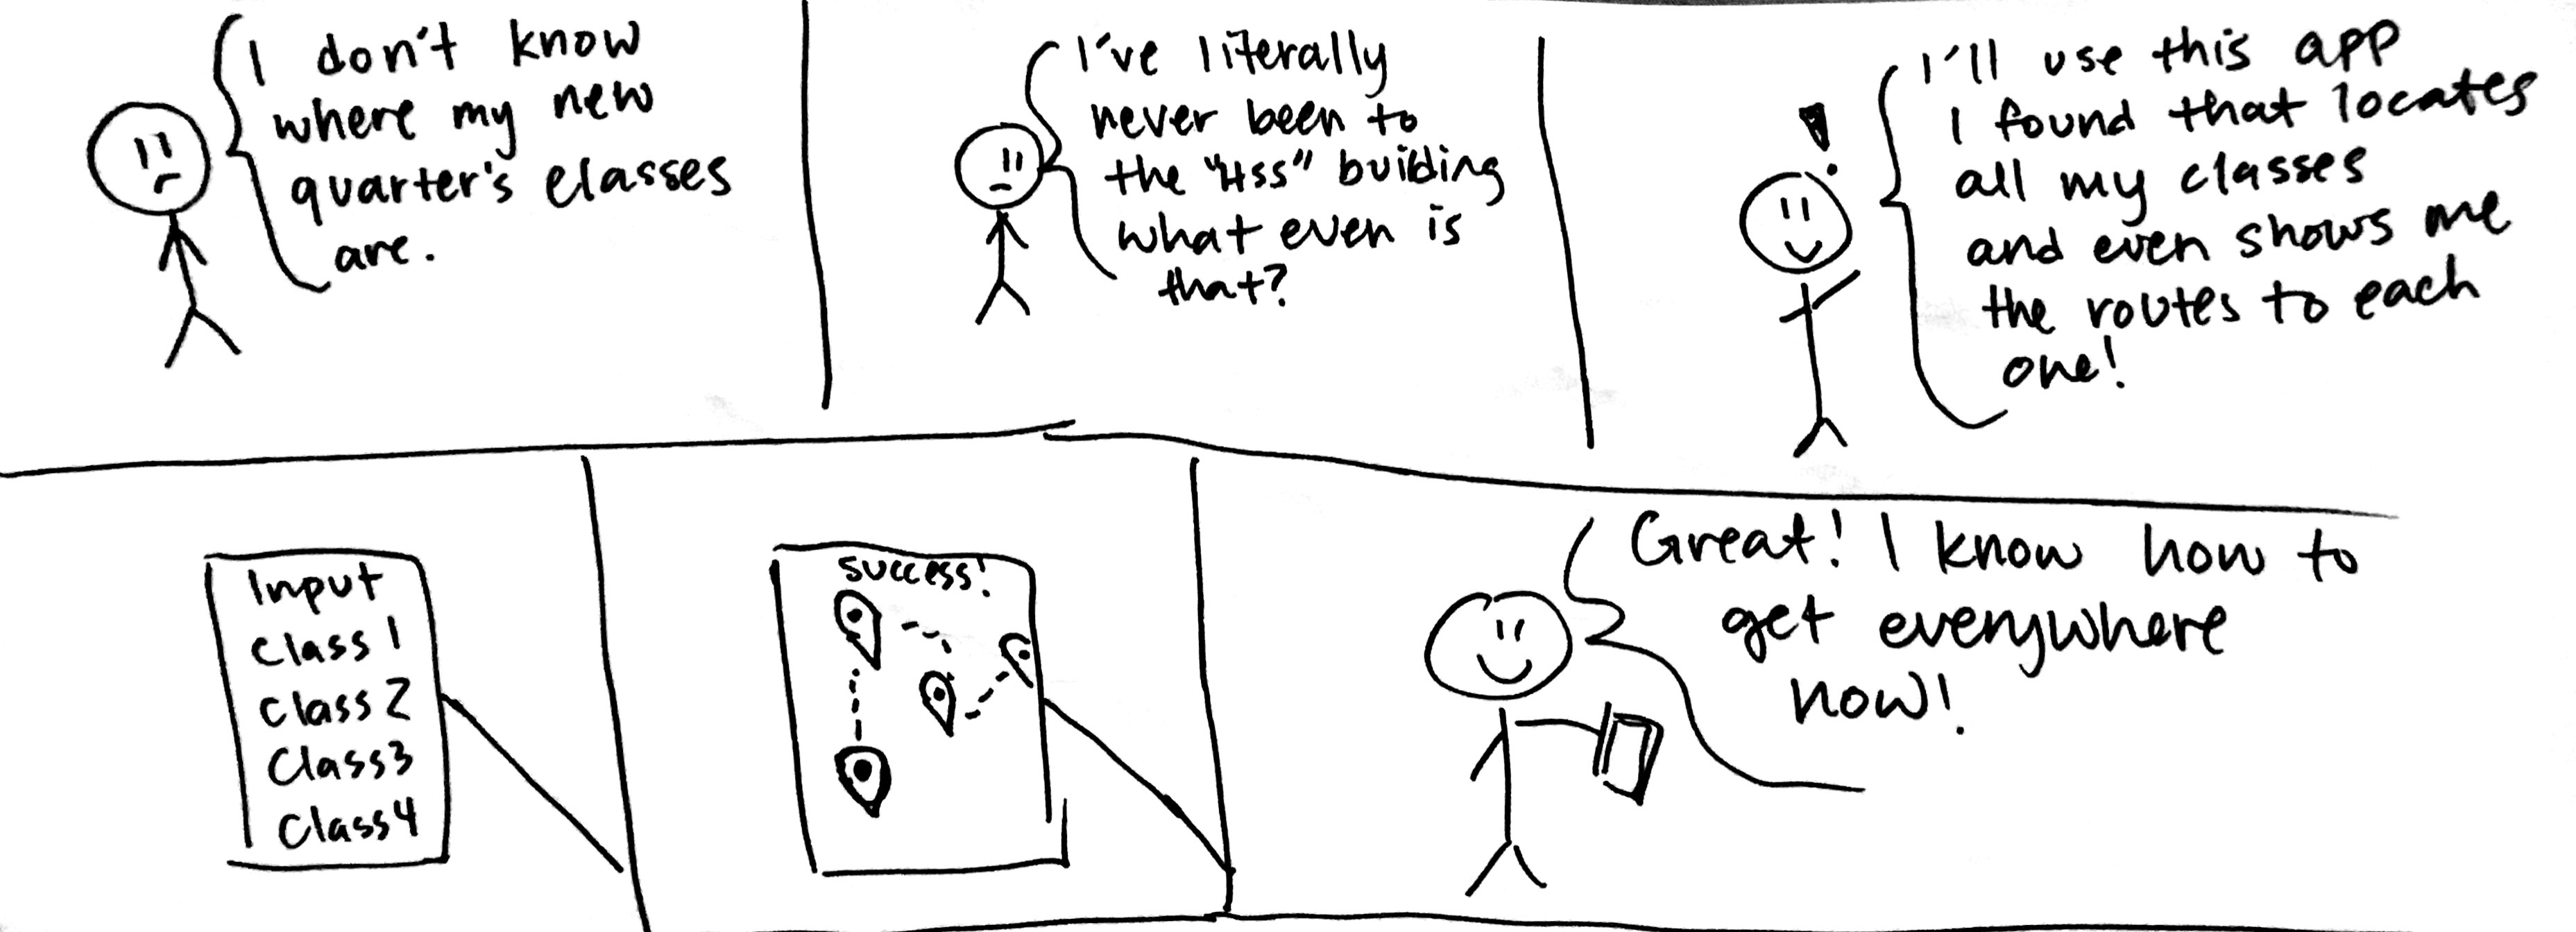 I don't know
where my new
quarter's classes
are.
I've literally
never been to
the "HSS" building
what even is
that?
!
I'll use this app
I found that locates
all my classes
and even shows me
the routes to each
one!
Input
Class 1
Class 2
Class 3
Class 4
success!
Great! I know how to
get everywhere
now!